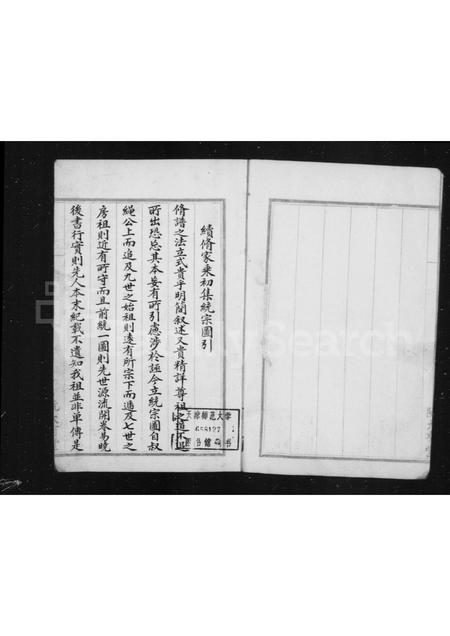 續脩家乘初集統宗圖引
脩譜之法立式貴乎明簡叙述又貴精詳尊祖之道不
所出恐忘其本妄有所引慮涉於誣今立統宗圖自叔
繩公上而追及九世之始祖則遠有所宗下而遞及七世之
房祖則近有所守而且前統一圖則先世源流開卷易曉
後書行實則先人本末紀載不遺知我祖並非單傳是
天津師範大學
658127
圖書館藏書